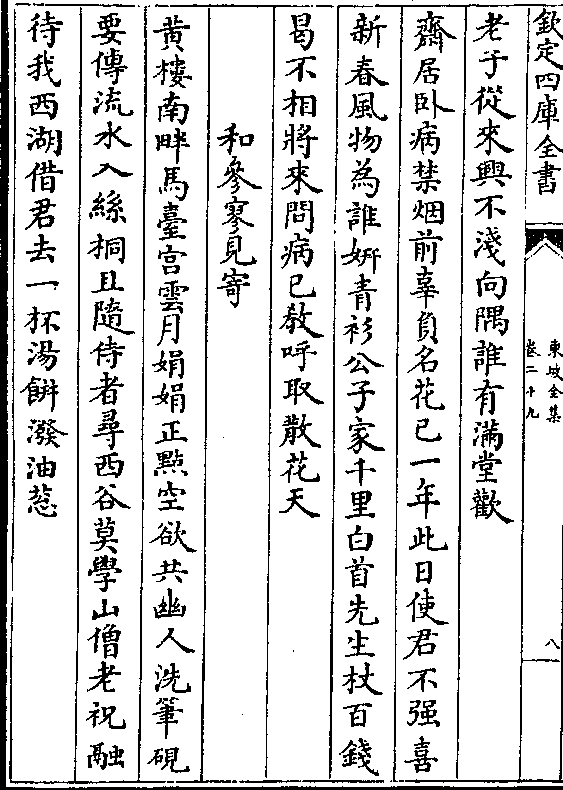 欽定四庫全書
東坡全集
卷二十九
八
老子從來興不淺向隅誰有滿堂歡
齋居卧病禁烟前辜負名花已一年此日使君不强喜
新春風物為誰妍青衫公子家千里白首先生杖百錢
曷不相將來問病已教呼取散花天
和參寥見寄
黄樓南畔馬臺宫雲月娟娟正㸃空欲共幽人洗筆硯
要傳流水入絲桐且隨侍者尋西谷莫學山僧老祝融
待我西湖借君去一杯湯餅潑油葱